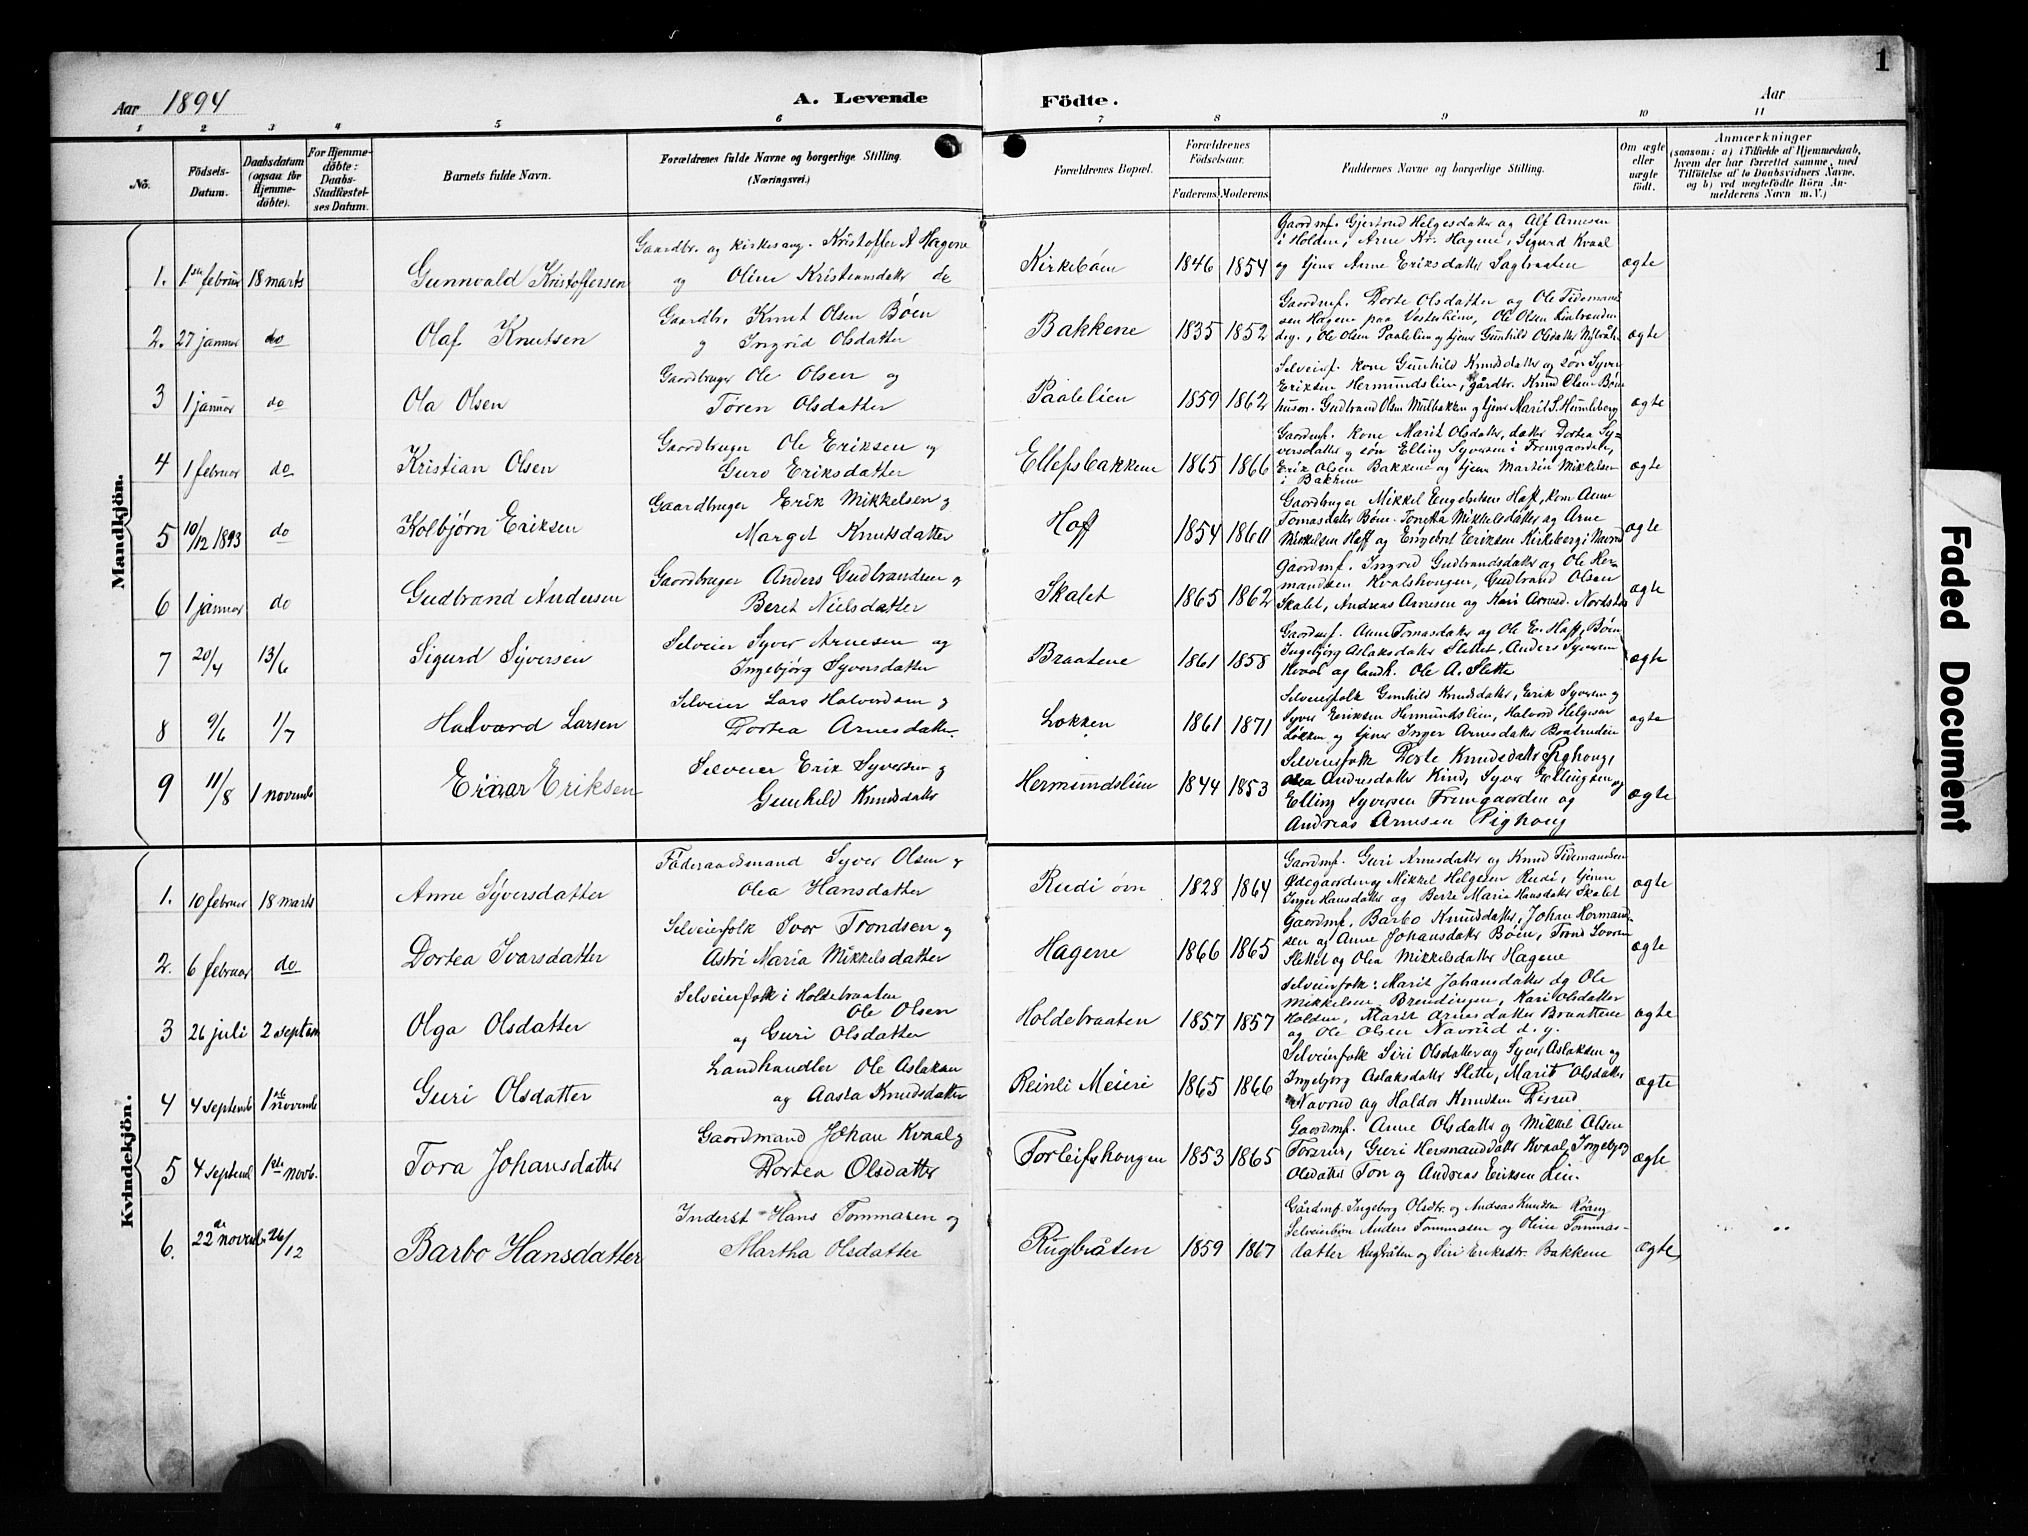 1
Aar 1894 A. Levende Födte. Aar
1 2 3 4 5 6 7 8 9 10 11
No. Födsels-Datum. Daabsdatum (ogsaa for Hjemmedøbte). For Hjemmedøbte: Daabs-Stadfæstelses Datum. Barnets fulde Navn. Forældrenes fulde Navne og borgerlige Stilling. (Næringsvei.) Forældrenes Bopæl. Forældrenes Födselsaar. Faderens Moderens Faddernes Navne og borgerlige Stilling. Om ægte eller uægte födt. Anmærkninger (saasom: a) i Tilfælde af Hjemmedaab, hvem der har forrettet samme, med Tilföielse af to Daabsvidners Navne, og b) ved uægtefödte Börn Anmelderens Navn m. V.)
Mandkjön.
1. 1ste februar 18 marts Gunnvald Kristoffersen Gaardbr. og kirkesang. Kristoffer A Hagene og Oline Kristiansdatter de Kirkebøen 1846 1854 Gaordmf. Gjertrud Helgesdatter og Alf Arnesen i Holden, Arne Kr. Hagene, Sigurd Kvaal og tjener Anne Eriksdatter Sagbraaten ægte
2. 27 januar do Olaf Knutsen Gaardbr. Knut Olsen Bøen og Ingrid Olsdatter Bakkene 1835 1852 Gaordmf. Dorte Olsdatter og Ole Tidemansen Hagene paa Vesterheim, Ole Olsen, Ole Olsen Paalelien og tjener Gunhild Olsdatter ægte
3 1 januar do Ola Olsen Gaordbruger Ole Olsen og Tören Olsdatter Paalelien 1859 1862 Selveierf. kone Gunhild Knudsdatter og sön Syver Eriksen Hermundslien, gårdbr. Knud Olsen Bøen, Gudbrand Olsen Mulbakken og tjener Marit S. Hermleberg ægte
4 1 februar do Kristian Olsen Gaordbruger Ole Eriksen og Guro Eriksdatter Ellefsbakkene 1865 1866 Gaordmf. kone Marit Olsdatter, datter Dortea Syversdatter og søn Elling Syversen i Fremgaarden, Erik Olsen Bakkene og tjener Martin Mikkelsen i Bakkene ægte
5 10/12 1893 do Kolbjørn Eriksen Gaardbruger Erik Mikkelsen og Marget Knutsdatter Hoff 1854 1860 Gaordbruger Mikkel Engebretsen Hoff, kone Anne Tomasdatter Bøen. Mikkelsdatter og Arne Mikkelsen Hoff og Engebret Eriksen Kirkeberg i Navrud ægte
6 1 januar do Gudbrand Andersen Gaordbruger Anders Gudbrandsen og Berit Nielsdatter Skalet 1865 1862 Gaordmf. Ingrid Gudbrandsdatter og Ole Hermandsen Kvalshougen, Gudbrand Olsen Skalet, Andreas Arnesen og Kari Arnesd. ægte
7 20/4 13/6 Sigurd Syversen Selveier Syver Arnesen og Ingebjørg Syversdatter Braatene 1861 1858 Gaordmf. Anne Tomasdatter og Ole E. Hoff, Bøen Ingebjørg Aslaksdatter Slettet, Anders Syversen og landh. Ole A. Slette ægte
8 9/6 1/7 Halvard Larsen Selveier Lars Halvordsen og Dortea Arnesdatter Løkken 1861 1871 Selveierfolk Gunhild Knudsdatter, Erik Syversen og Syver Eriksen Hermundslien, Halvord Helgesen Løkken og tjener Inger Arnesdatter ægte
9 11/8 1 novembr Einar Eriksen Selveier Erik Syversen og Gunhild Knudsdatter Hermundslien 1844 1853 Selveierfolk Dorte Knudsdatter Pighoug, Olea Andersdatter Kind, Syver Ellingsen og Elling Syversen Fremgaarden og Andreas Arnesen Pighoug ægte
Kvindekjön.
1. 10 februar 18 marts Anne Syversdatter Föderaadsmand Syver Olsen og Olea Hansdatter Rudi øvn 1828 1864 Gaordmf. Guri Arnesdatter og Knud Tidemandsen Ødegaarden og Mikkel Helgesen Rudi, tjener Inger Hansdatter og Berte Maria Hansdatter Skalet ægte
2. 6 februar do Dortea Ivarsdatter Selveierfolk Ivor Trondsen og Astri Maria Mikkelsdatter Hagene 1866 1865 Gaordmf. Barbo Knudsdatter, Johan Hermandsen og Anne Johansdatter Bøen, Trond Ivorsen Slettet og Olea Mikkelsdatter Hagene ægte
3 26 juli 2 septem Olga Olsdatter Selveierfolk i Holdebraaten Ole Olsen og Guri Olsdatter Holdebraaten 1857 1857 Selveierfolk: Marit Johansdatter og Ole Mikkelsen Brendingen, Kari Olsdatter Holden, Marit Arnesdatter Braattene og Ole Olsen Navrud d. y. ægte
4 4 septembr 1ste novembr Guri Olsdatter Landhandler Ole Aslaksen og Aasta Knudsdatter Reinli Meieri 1865 1866 Selveierfolk Siri Olsdatter og Syver Aslaksen og Ingebjørg Aslaksdatter Slette, Marit Olsdatter Navrud og Haldor Knudsen Disrud ægte
5 4 septembr 1ste novb. Tora Johansdatter Gaordmand Johan Kvaal og Dortea Olsdatter Torleifshougen 1853 1865 Gaordmf. Anne Olsdatter og Mikkel Olsen, Guri Hermandsdatter Kvaal, Ingebjørg Olsdatter Ton og Andreas Eriksen Lien. ægte
6. 22de novembr 26/12 Barbo Hansdatter Inderst Hans Tommasen og Martha Olsdatter Rugbråten 1859 1867 Gårdmf. Ingeborg Olsdtr. og Andreas Knudsen Røang Selveierbørn Anders Tommasen og Oline Tommasdatter Rugbråten og Siri Eriksdtr. Bakkene ægte
Faded Document